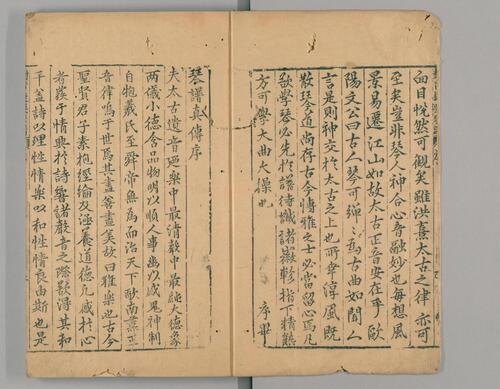 面目恍然可觀矣雖洪熹太古之律亦可
至矣豈非琴人神合心融妙也每想風
景易遷江山如故太古正音安在乎歐
陽文公曰古人琴可彈之爲古曲如聞人
言是則神交於太古之上也所幸淳風既
散琴道尚存古今博雅之士必當留心焉凡
欲學琴必先於譜待識諸徽軫指下精熟
方可學大曲大操也 序畢
琴譜真傳序
夫太古遺音廼樂中最清數中最純大德參
兩儀小德含品物明以順人事幽以感鬼神制
自庖羲氏至舜帝無為而治天下歌南薰五
音律鳴于世為其盡善盡美故曰雅樂也古今
聖賢君子素抱經綸及涵養道德凡感於心
者發于情興於詩諸聲音之際得其和
平蓋詩以理性情樂以和性情良由斯也是